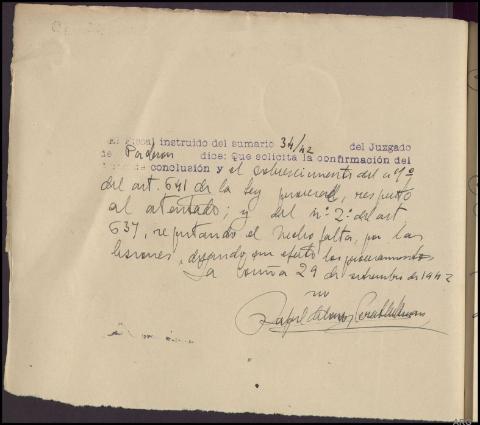 El Fiscal instruido del sumario 34/42 del Juzgado
de Padron dice: Que solicita la confirmación del
de conclusión y el sobreseimiento del nº 1º
del art. 641 de la ley procesal, respecto
al atentado; y del nº 2º del art
637, reputando el hecho falta, por las
lesiones, dejando sin efecto los procesamientos
La Coruña 29 de setiembre de 1942